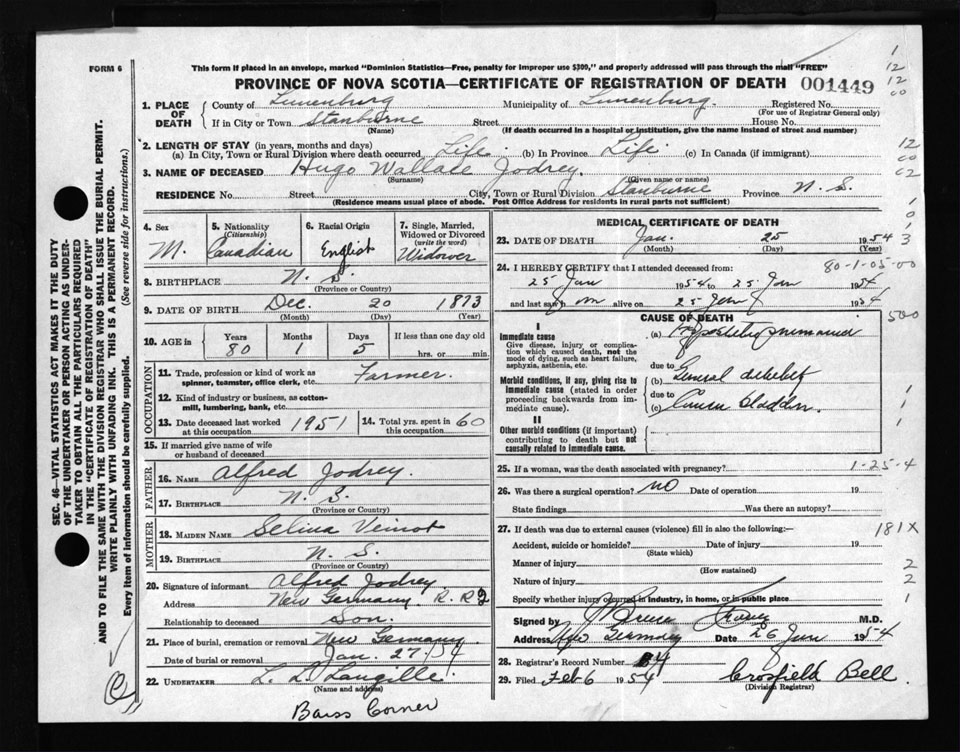 FORM 6
This form if placed in an envelope, marked "Dominion Statistics—Free, penalty for improper use $300," and properly addressed will pass through the mail "FREE"
PROVINCE OF NOVA SCOTIA—CERTIFICATE OF REGISTRATION OF DEATH 001449
1. PLACE OF DEATH County of Lunenburg Municipality of Lunenburg Registered No.
(For use of Registrar General only)
If in City or Town Stanburne Street House No.
(Name) (If death occurred in a hospital or institution, give the name instead of street and number)
2. LENGTH OF STAY (in years, months and days)
(a) In City, Town or Rural Division where death occurred Life (b) In Province Life (c) In Canada (if immigrant)
3. NAME OF DECEASED Hugo Wallace Jodrey.
(Surname) (Given name or names)
RESIDENCE No. Street City, Town or Rural Division Stanburne Province N. S.
(Residence means usual place of abode. Post Office Address for residents in rural parts not sufficient)
4. Sex
M.
5. Nationality
(Citizenship)
Canadian
6. Racial Origin
English
7. Single, Married, Widowed or Divorced
(write the word)
Widower
8. BIRTHPLACE N. S.
(Province or Country)
9. DATE OF BIRTH Dec. 20 1873
(Month) (Day) (Year)
10. AGE in Years Months Days If less than one day old
80 1 5 hrs. or min.
OCCUPATION
11. Trade, profession or kind of work as spinner, teamster, office clerk, etc. Farmer.
12. Kind of industry or business, as cotton-mill, lumbering, bank, etc.
13. Date deceased last worked at this occupation 1951
14. Total yrs. spent in this occupation 60
15. If married give name of wife or husband of deceased
FATHER
16. NAME Alfred Jodrey.
17. BIRTHPLACE N. S.
(Province or Country)
MOTHER
18. MAIDEN NAME Selina Veinot
19. BIRTHPLACE N. S.
(Province or Country)
20. Signature of informant Alfred Jodrey
Address New Germany. R. R 2
Relationship to deceased Son.
21. Place of burial, cremation or removal New Germany.
Date of burial or removal Jan. 27. 54
22. UNDERTAKER L. L. Langille.
(Name and address)
Barss Corner
MEDICAL CERTIFICATE OF DEATH
23. DATE OF DEATH Jan. 25 1954
(Month) (Day) (Year)
24. I HEREBY CERTIFY that I attended deceased from: 80-1-05-00
25 Jan 1954 to 25 Jan 1954
and last saw him alive on 25 Jan 1954
CAUSE OF DEATH
I
Immediate cause
Give disease, injury or complication which caused death, not the mode of dying, such as heart failure, asphyxia, asthenia, etc.
(a)
due to
Morbid conditions, if any, giving rise to immediate cause (stated in order proceeding backwards from immediate cause).
(b) General debility
due to
(c) Cancer bladder.
II
Other morbid conditions (if important) contributing to death but not causally related to immediate cause.
25. If a woman, was the death associated with pregnancy? 1-25-4
26. Was there a surgical operation? no Date of operation 19
State findings Was there an autopsy?
27. If death was due to external causes (violence) fill in also the following:— 181X
Accident, suicide or homicide? Date of injury 19
(State which)
Manner of injury 2
(How sustained)
Nature of injury 2
Specify whether injury occurred in industry, in home, or in public place 1
Signed by M.D.
Address New Germany Date 26 Jan 1954
28. Registrar's Record Number
29. Filed Feb 6 1954 Crosfield Bell.
(Division Registrar)
SEC. 46—VITAL STATISTICS ACT MAKES IT THE DUTY
OF THE UNDERTAKER OR PERSON ACTING AS UNDER-
TAKER TO OBTAIN ALL THE PARTICULARS REQUIRED
IN THE "CERTIFICATE OF REGISTRATION OF DEATH"
AND TO FILE THE SAME WITH THE DIVISION REGISTRAR WHO SHALL ISSUE THE BURIAL PERMIT.
WRITE PLAINLY WITH UNFADING INK. THIS IS A PERMANENT RECORD.
Every item of information should be carefully supplied. (See reverse side for instructions.)